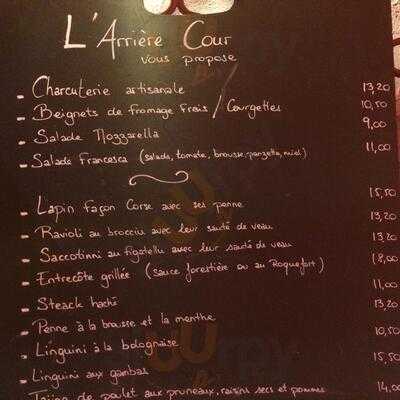 L'Arrière Cour
vous propose
- Charcuterie artisanale 13,20
- Beignets de fromage frais / Courgettes 10,50
- Salade Mozzarella 9,00
- Salade Francesca (salade, tomate, brousse, panzetta, miel) 11,00
- Lapin façon Corse avec ses penne 15,50
- Ravioli au brocciu avec leur sauté de veau 13,20
- Saccotinni au figatellu avec leur sauté de veau 13,20
- Entrecôte grillée (sauce forestière ou au Roquefort) 18,00
- Steack haché 11,00
- Penne à la brousse et la menthe 13,20
- Linguini à la bolognaise 10,50
- Linguini aux gambas 15,50
- Tajine de poulet aux pruneaux, raisins secs et pommes 14,00